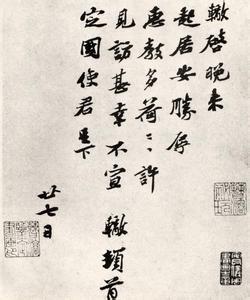 轍啓晚来
起居安勝辱
惠教多荷〻許
見訪甚幸不宣
轍頓首
定國使君足下
廿七日